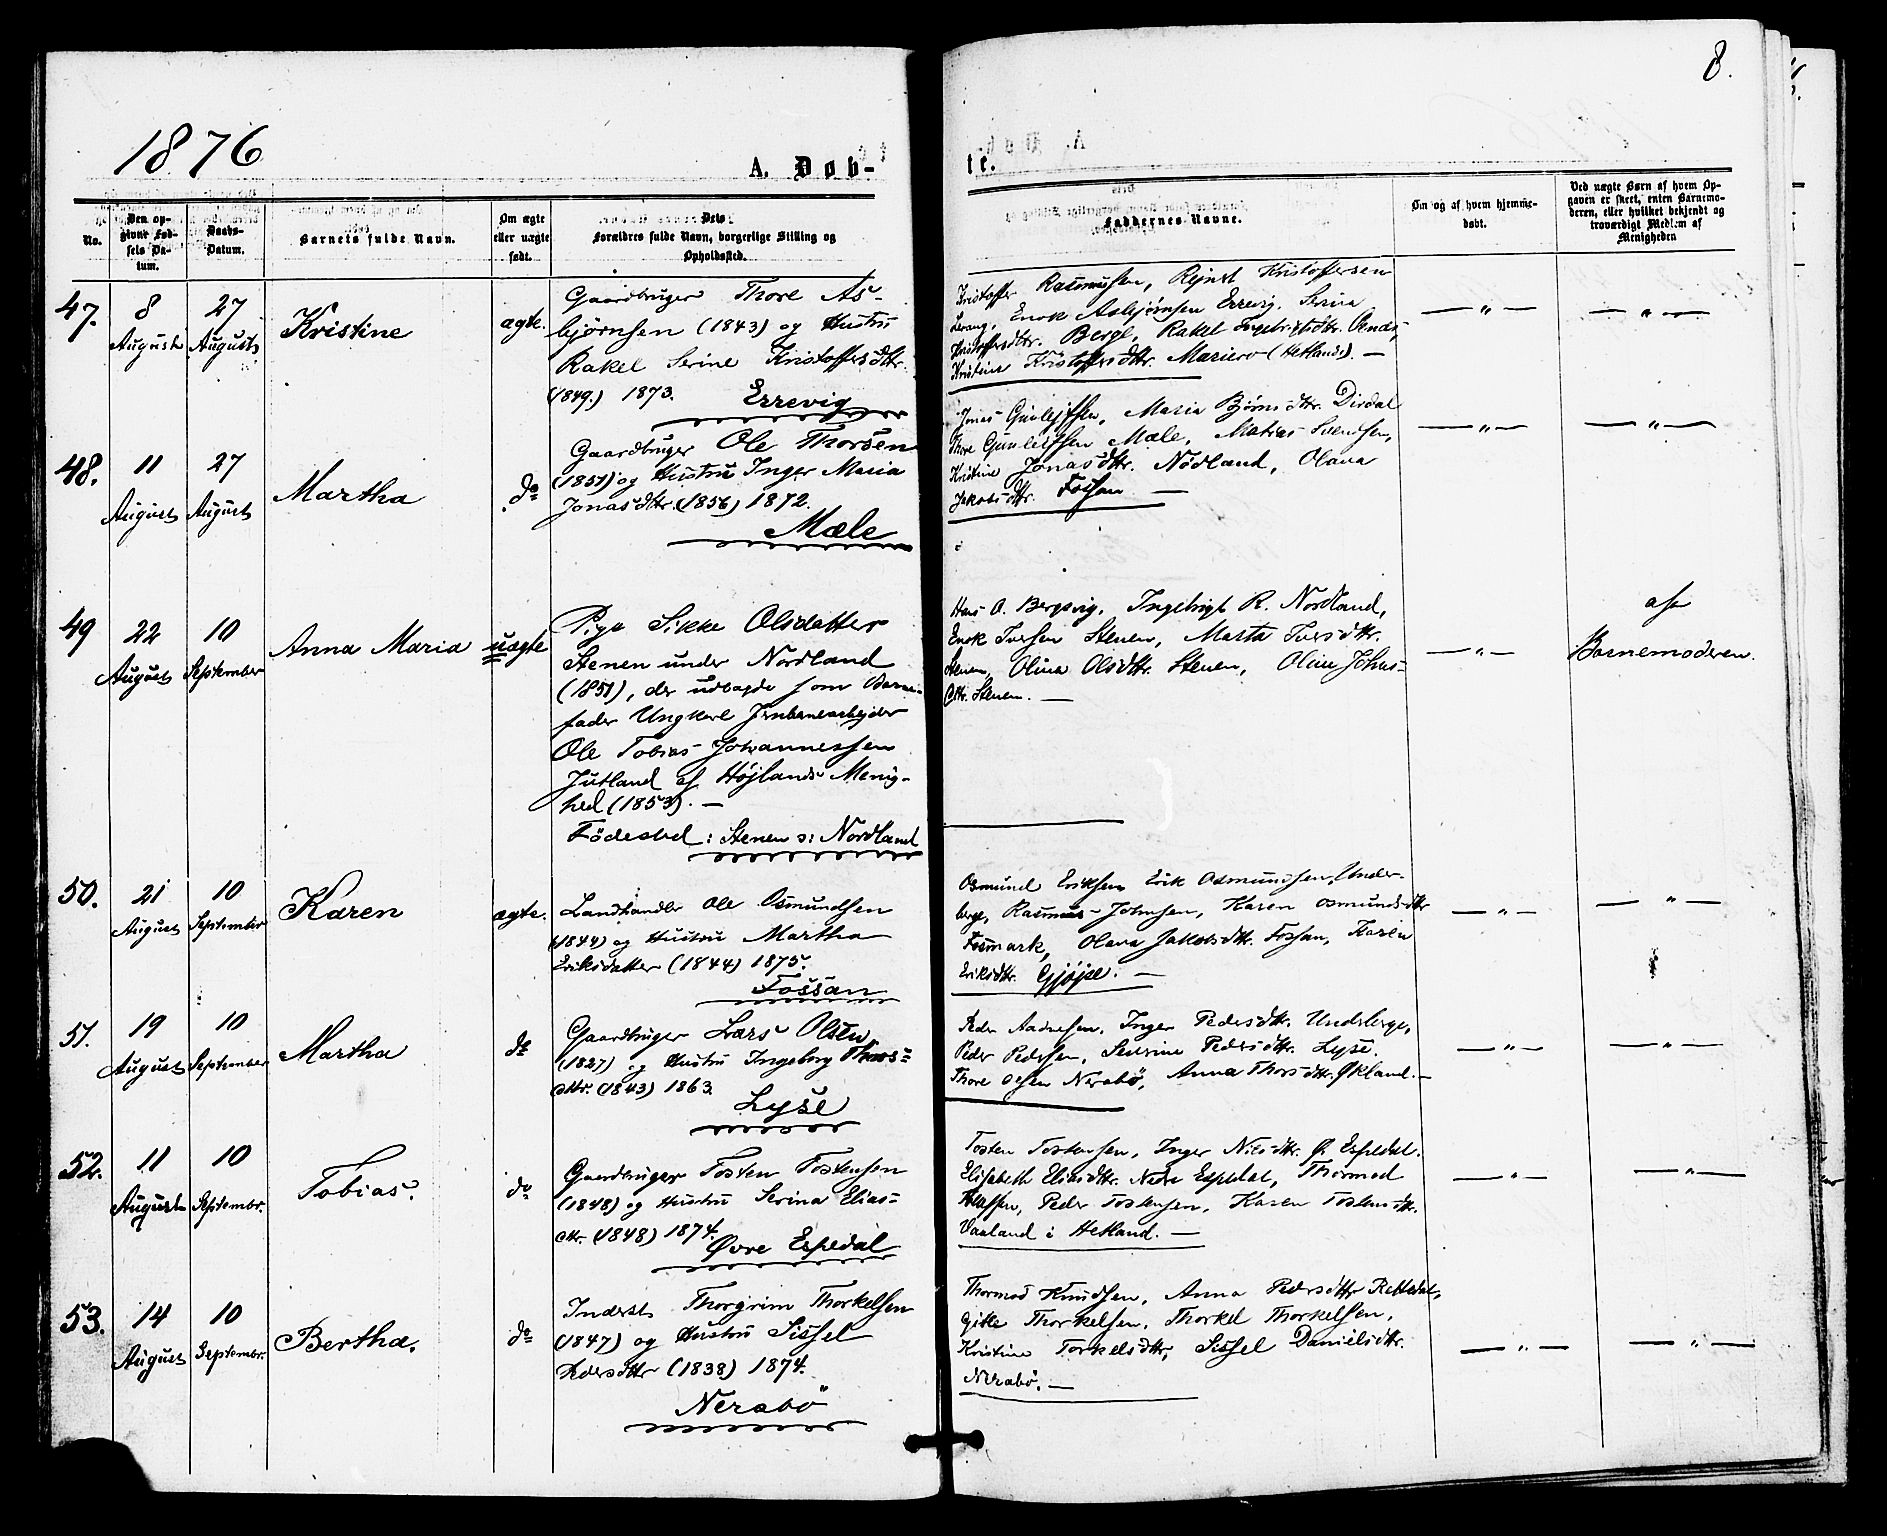 8.
1876
A. Døb-
te.
No.
Den op-
givne Fød-
sels Da-
tum.
Daabs-
Datum.
Barnets fulde Navn.
Om ægte
eller uægte
født.
Forældres fulde Navn, borgerlige Stilling og
Opholdssted.
Faddernes Navne.
Om og af hvem hjemme-
døbt.
Ved uægte Børn af hvem Op-
gaven er skeet, enten Barnemo-
deren, eller hvilket bekjendt og
troværdigt Medlem af
Menigheden
47.
8
August
27
August
Kristine
ægte.
Gaardbruger Thore As-
bjørnsen (1843) og Hustru
Rakel Serine Kristoffersdtr.
(1849.) 1873.
Errevig
Kristoffer Rasmussen, Rejnert Kristoffersen
Lerang, Enok Asbjørnsen Errevig, Serina
Kristoffersdtr. Berge, Rakel Ingebrigtsdtr. Oenæs,
Kristine Kristoffersdtr. Mariero (Hetland). —
— " —
— " —
48.
11
August
27
August
Martha
do
Gaardbruger Ole Thorsen
(1851) og Hustru Inger Maria
Jonasdtr. (1856) 1872.
Mæle
Jonas Gunlejksen, Maria Bjørnsdtr. Dirdal
Thore Gunleiksen Mæle, Matias Svendsen,
Kristine Jonasdtr. Nødland, Olava
Jakobsdtr. Fossan —
— " —
— " —
49
22
August
10
September
Anna Maria
uægte
Pige Sikke Olsdatter
Stenen under Nordland
(1851), der udlagde som Barne-
fader Ungkarl Jernbanearbejder
Ole Tobias Johannessen
Jutland af Højlands Menig-
hed (1853). —
Födested: Stenen u: Nordland
Hans O. Bergevig, Ingebrigt R. Nordland,
Enok Iversen Stenen, Marta Iversdtr.
Stenen, Olina Olsdtr. Stenen, Oline Johns-
dtr. Stenen. —
— " —
af
Barnemoderen.
50.
21
August
10
September
Karen
ægte.
Landhandler Ole Osmundsen
(1844) og Hustru Martha
Eriksdatter (1844) 1875.
Fossan
Osmund Eriksen, Erik Osmundsen, Under-
berge, Rasmus Johnsen, Karen Osmundsdtr
Fosmark, Olava Jakobsdtr. Fossan, Karen
Eriksdtr. Gjøjse. —
— " —
— " —
51.
19
August
10
September
Martha
do
Gaardbruger Lars Olsen
(1827) og Hustru Ingeborg Thors-
dtr. (1843) 1863.
Lyse
Peder Aadnesen, Inger Pedersdtr. Underberge,
Peder Pedersen, Severine Pedersdtr. Lyse.
Thore Olsen Nerabö, Anna Thorsdtr. Økland. —
— " —
— " —
52.
11
August
10
Septembr.
Tobias.
do
Gaardbruger Tosten Tostensen
(1848) og Hustru Serina Elias-
dtr. (1848) 1874.
Øvre Espedal
Tosten Tostensen, Inger Nilsdtr. Ø. Espedal.
Elisabeth Eliasdtr. Nedre Espedal, Thormod
Peder Tostensen, Karen Tostensdtr.
Vaaland i Hetland. —
— " —
— " —
53.
14
August
10
Septembr.
Bertha.
do
Inderst Thorgrim Thorkelsen
(1847) og Hustru Sissel
Pedersdtr (1838) 1874.
Nerabö
Thormod Knudsen, Anna Pedersdtr Rettedal,
Gitle Thorkelsen, Thorkel Thorkelsen,
Kristine Torkelsdtr, Sissel Danielsdtr.
Nerabø. —
— " —
— " —